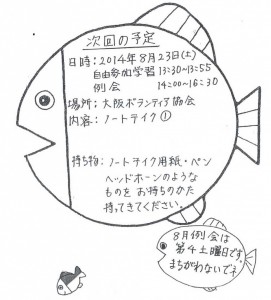 次回の予定
日時：2014年8月23日(土)
自由参加学習 13:30~13:55
例会 14:00~16:30
場所：大阪ボランティア協会
内容：ノートテイク①
持ち物：ノートテイク用紙・ペン
ヘッドホーンのような
ものを お持ちのかた
持ってきてください。
8月例会は
第4土曜日です。
まちがわないでネ